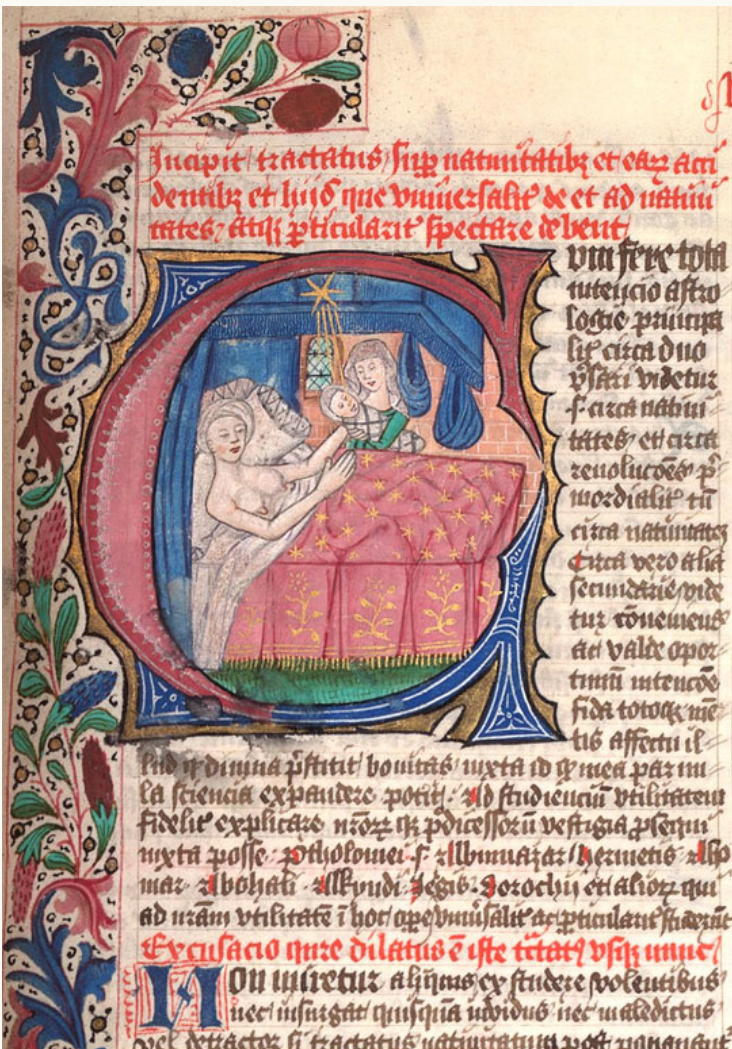 Incipit tractatus sup natiuitatibꝫ et eaꝝ acci
dentibꝫ et hijs que vniuersalit̉ de et ad natiui
tates atqꝫ ꝑticularit̉ spectare debent
Cvm fere tota
intencio astro
logie principa
lit̉ circa duo
ẜsari videtur
.s. circa natiui
tates et circa
reuolucões pͥ
mordialit̉ tn̄
circa natiuitates
Circa vero alia
secundarie vide
tur cōueniens
ac valde opor
tunū intencōe
fida totoqꝫ mē
tis affectu il
lud qꝫ diuina p̄stitit bonitas iuxta id qꝫ mea parui
la sciencia expandere potit̉. Ad studenciū vtilitatem
fidelit̉ explicare nr̄oꝝ qꝫ p̄dicessorū vestigia ꝓsequi
iuxta posse. Ptholomei .s. Albumazar Hermetis Aho
mar. Albohali. Alkyndi Zegis. Dorochij et alioꝝ qui
ad nr̄am vtilitatē ī hoc oꝑe vniu̓salit̉ ac ꝑticularit̉ studerūt
Excusacio qure dilatus ē iste tc̄tatꝰ vsqꝫ nunc
Non miretur aliquis ex studere volentibus
nec insurgat quisquā inuidus nec maledictus
vel detractor si tractatus natiuitatum post